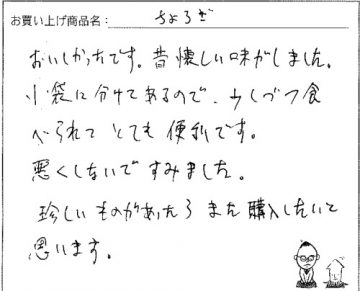 お買い上げ商品名: ちょろぎ
おいしかったです。昔懐しい味がしました。
小袋に分けてあるので、少しづつ食
べられて とても 便利です。
悪くしないで すみました。
珍しい ものがあったら また 購入したいと
思います。